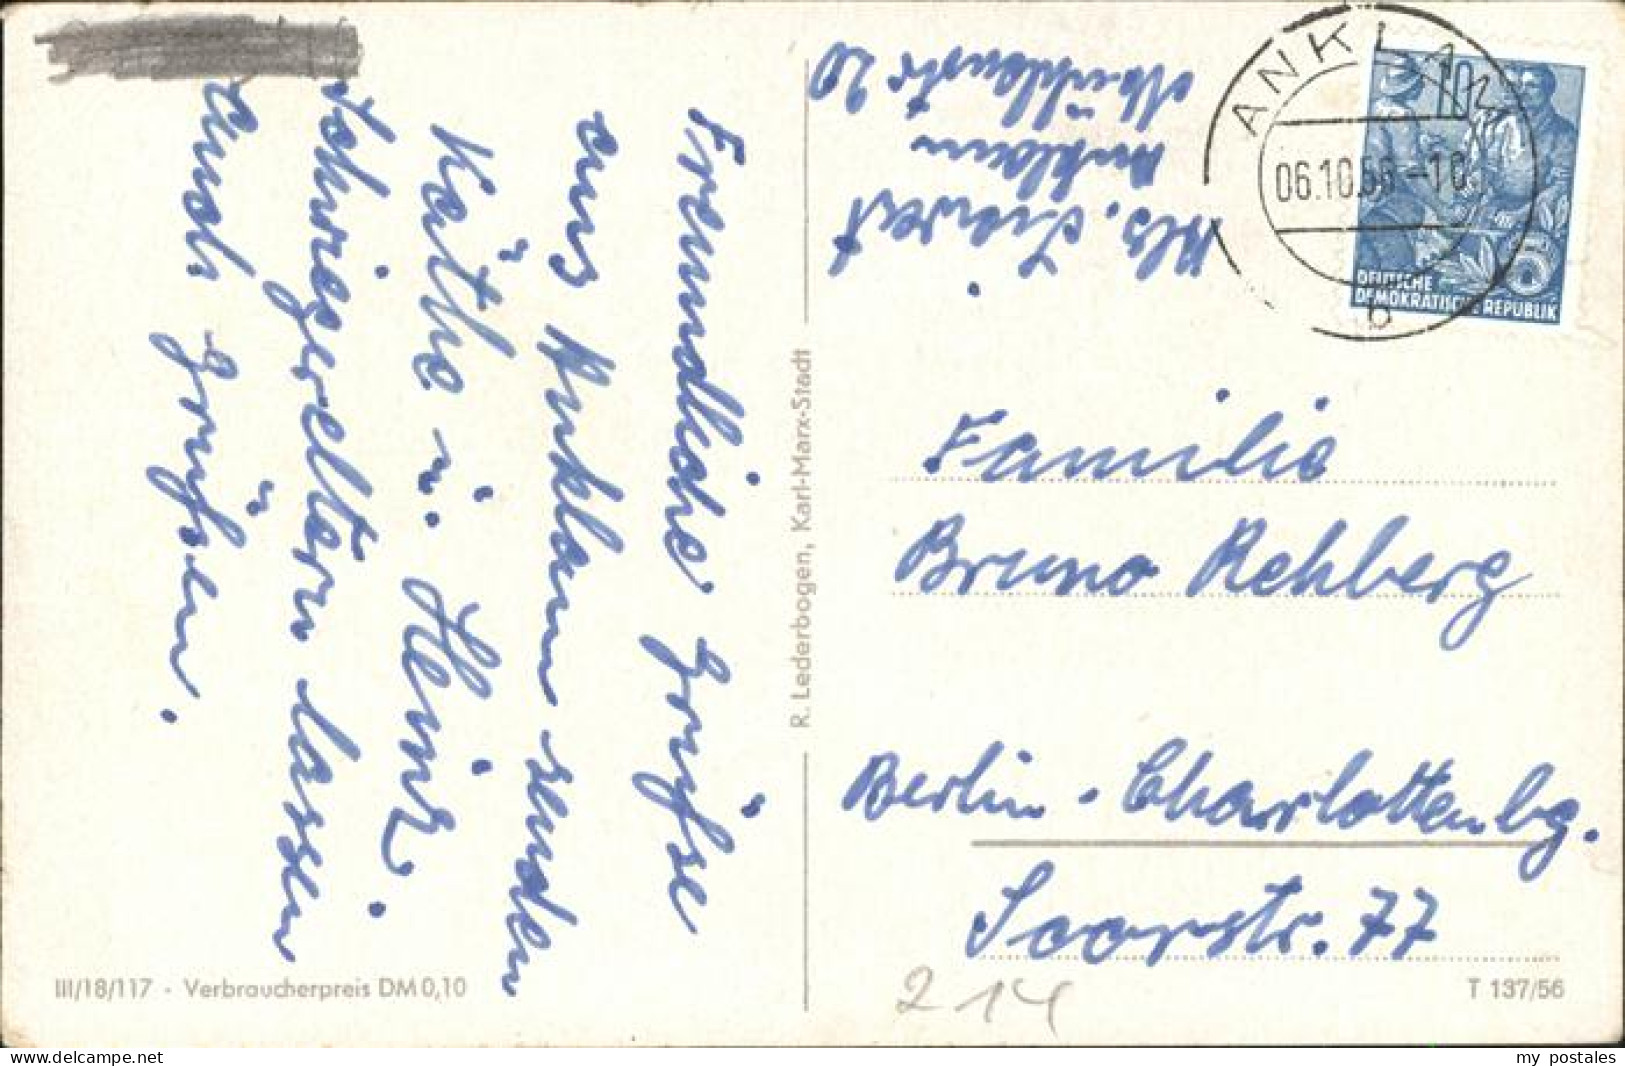 Freundliche Grüße
aus Anklam senden
Käthe u. Heinz.
Schwiegereltern lassen
auch grüßen.
Anklam
20
ANKLAM
06.10.56-10
b
10
DEUTSCHE
DEMOKRATISCHE REPUBLIK
R. Lederbogen, Karl-Marx-Stadt
Familie
Bruno Rehberg
Berlin - Charlottenbg.
Saarstr. 77
214
III/18/117 - Verbraucherpreis DM 0,10
T 137/56
www.delcampe.net
my_postales